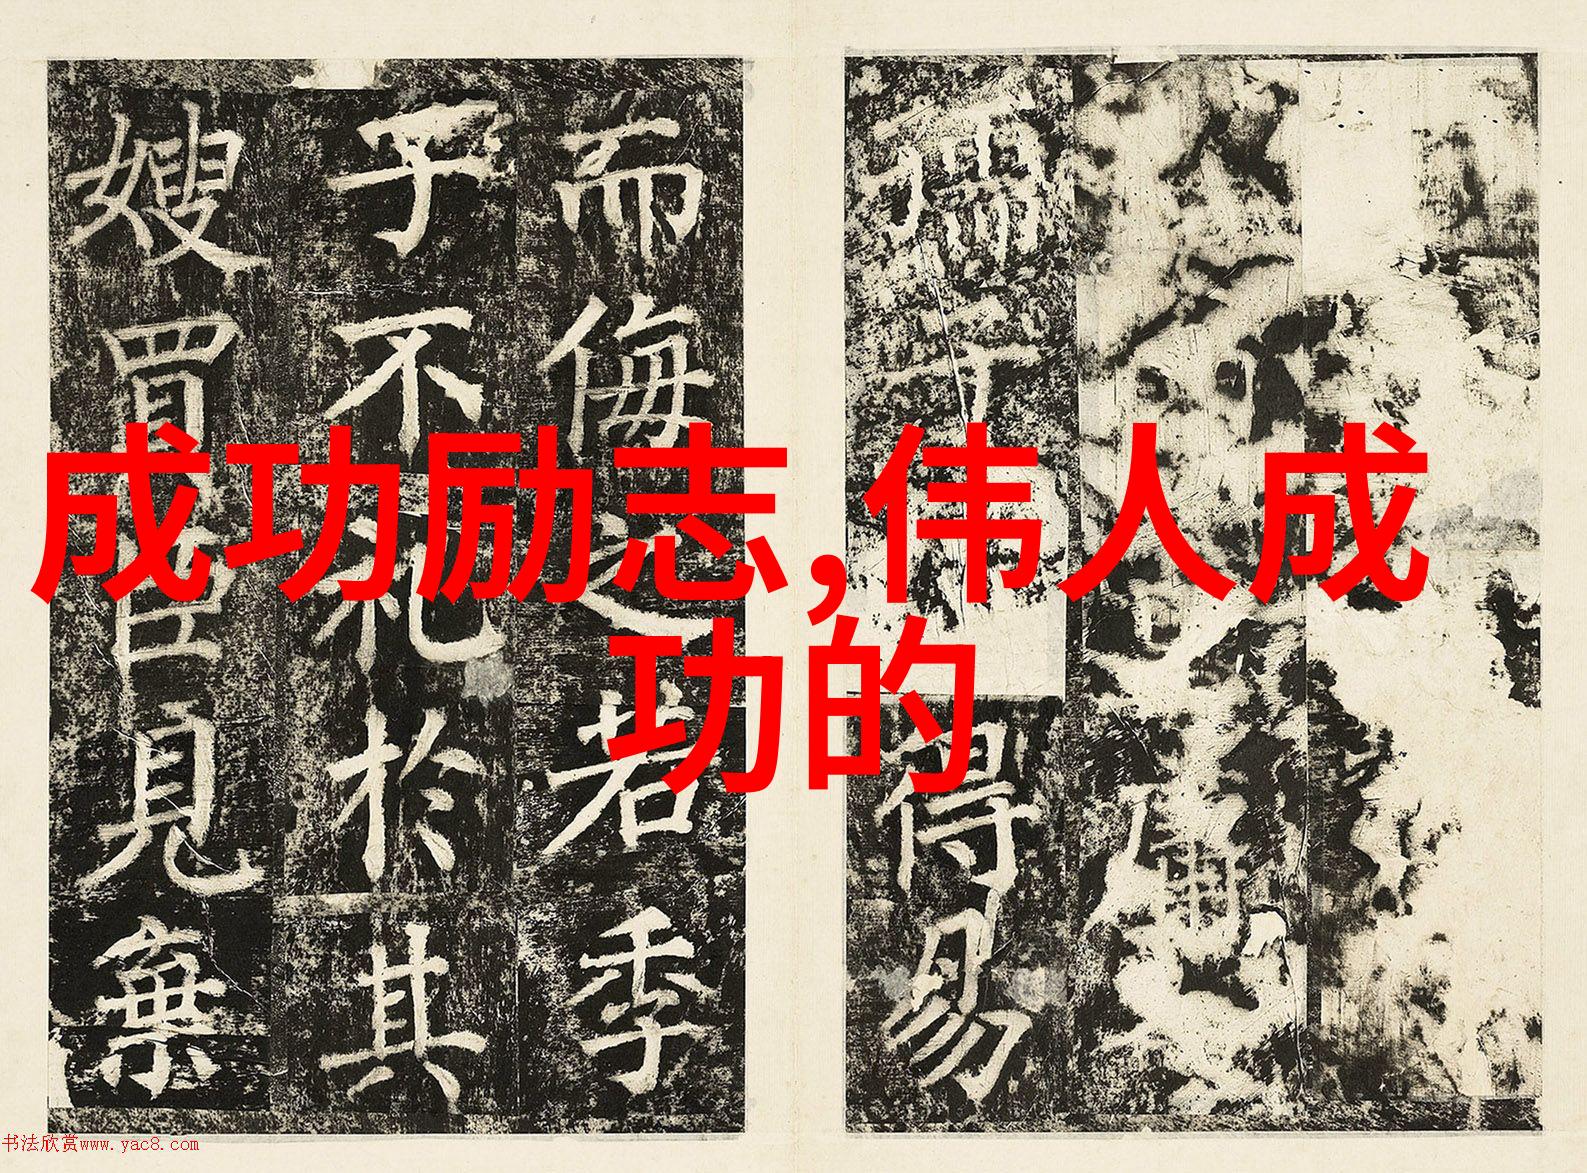 得易
而侮之若季
子不礼於其
嫂買臣見棄
成功励志,伟人成
功的
书法欣赏www.yac8.com